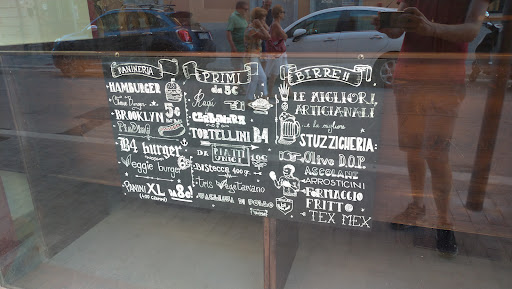 PANINERIA
HAMBURGER
Cheese Burger
5€
BROOKLYN
B4 burger
Veggie burger
PANINI XL
8€
PRIMI
da 5€
Ragù
CARBONARA
TORTELLINI B4
DA
PIATTI UNICI
BISTECCA 400 gr.
Tris Vegetariano
BIRRE!!
LE MIGLIORI
ARTIGIANALI
e la migliore
STUZZICHERIA
Olive D.O.P.
ASCOLANE
ARROSTICINI
FORMAGGIO
FRITTO
TEX MEX